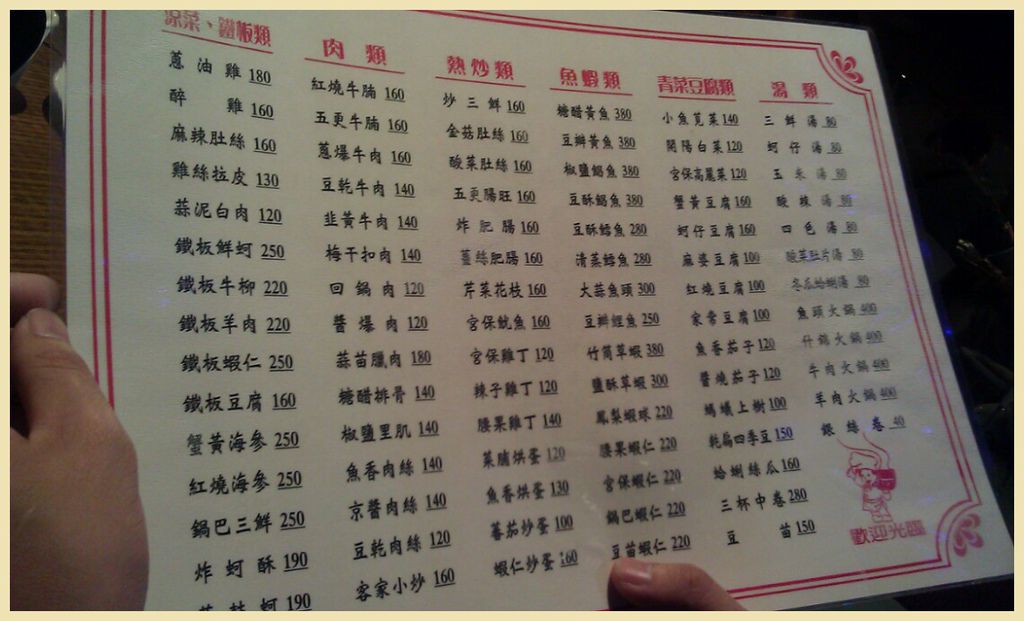 涼菜、鐵板類
蔥油雞 180
醉雞 160
麻辣肚絲 160
雞絲拉皮 130
蒜泥白肉 120
鐵板鮮蚵 250
鐵板牛柳 220
鐵板羊肉 220
鐵板蝦仁 250
鐵板豆腐 160
蟹黃海參 250
紅燒海參 250
鍋巴三鮮 250
炸蚵酥 190
蚵 190
肉類
紅燒牛腩 160
五更牛腩 160
蔥爆牛肉 160
豆乾牛肉 140
韭黃牛肉 140
梅干扣肉 140
回鍋肉 120
醬爆肉 120
蒜苗臘肉 180
糖醋排骨 140
椒鹽里肌 140
魚香肉絲 140
京醬肉絲 140
豆乾肉絲 120
客家小炒 160
熱炒類
炒三鮮 160
金菇肚絲 160
酸菜肚絲 160
五更腸旺 160
炸肥腸 160
薑絲肥腸 160
芹菜花枝 160
宮保魷魚 160
宮保雞丁 120
辣子雞丁 120
腰果雞丁 140
菜脯烘蛋 120
魚香烘蛋 130
蕃茄炒蛋 100
蝦仁炒蛋 160
魚蝦類
糖醋黃魚 380
豆瓣黃魚 380
椒鹽鯧魚 380
豆酥鯧魚 380
豆酥鱈魚 280
清蒸鱈魚 280
大蒜魚頭 300
豆瓣鯉魚 250
竹筒草蝦 380
鹽酥草蝦 300
鳳梨蝦球 220
腰果蝦仁 220
宮保蝦仁 220
鍋巴蝦仁 220
豆苗蝦仁 220
青菜豆腐類
小魚莧菜 140
開陽白菜 120
宮保高麗菜 120
蟹黃豆腐 160
蚵仔豆腐 160
麻婆豆腐 100
紅燒豆腐 100
家常豆腐 100
魚香茄子 120
醬燒茄子 120
螞蟻上樹 100
乾扁四季豆 150
蛤蜊絲瓜 160
三杯中卷 280
豆苗 150
湯類
三鮮湯 80
蚵仔湯 80
玉米湯 80
酸辣湯 80
四色湯 80
酸菜肚片湯 80
冬瓜蛤蜊湯 80
魚頭火鍋 400
什錦火鍋 400
牛肉火鍋 400
羊肉火鍋 400
銀絲卷 40
歡迎光臨